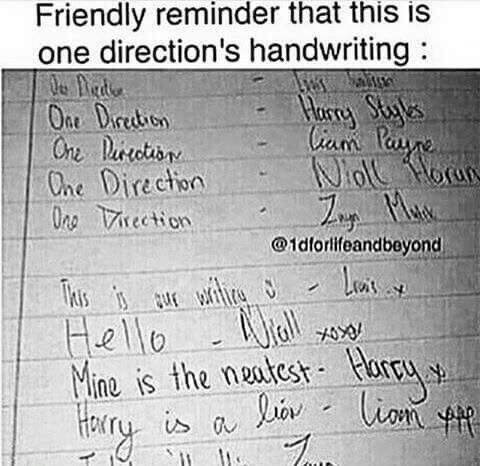 Friendly reminder that this is
one direction's handwriting :
One Direction - Louis Tomlinson
One Direction - Harry Styles
One Direction - Liam Payne
One Direction - Niall Horan
One Direction - Zayn Malik
@1dforlifeandbeyond
This is our writing :) - Louis x
Hello - Niall xoxo
Mine is the neatest - Harry x
Harry is a liar - Liam